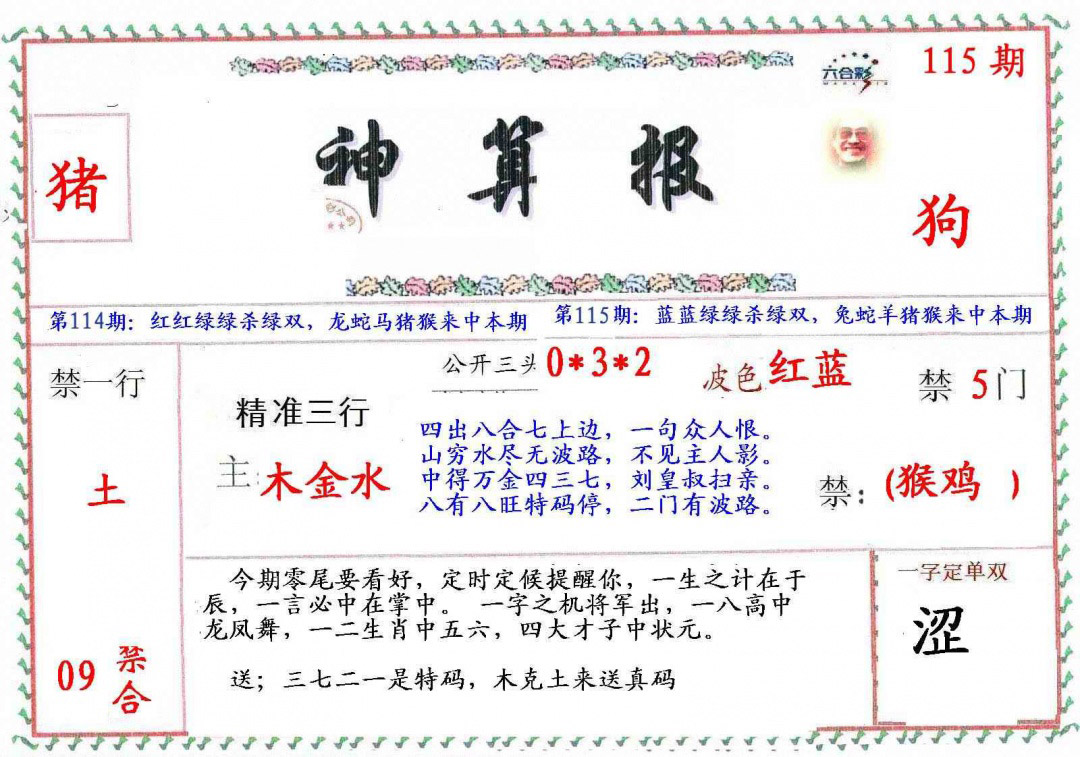 六合彩
115 期
猪
神算报
狗
第114期：红红绿绿杀绿双，龙蛇马猪猴来中本期
第115期：蓝蓝绿绿杀绿双，兔蛇羊猪猴来中本期
禁一行
土
09 禁合
精准三行
主:木金水
公开三头 0*3*2
波色红蓝
禁 5门
四出八合七上边，一句众人恨。
山穷水尽无波路，不见主人影。
中得万金四三七，刘皇叔扫亲。
八有八旺特码停，二门有波路。
禁：(猴鸡 )
今期零尾要看好，定时定候提醒你，一生之计在于
辰，一言必中在掌中。 一字之机将军出，一八高中
龙凤舞，一二生肖中五六，四大才子中状元。
送；三七二一是特码，木克土来送真码
一字定单双
涩